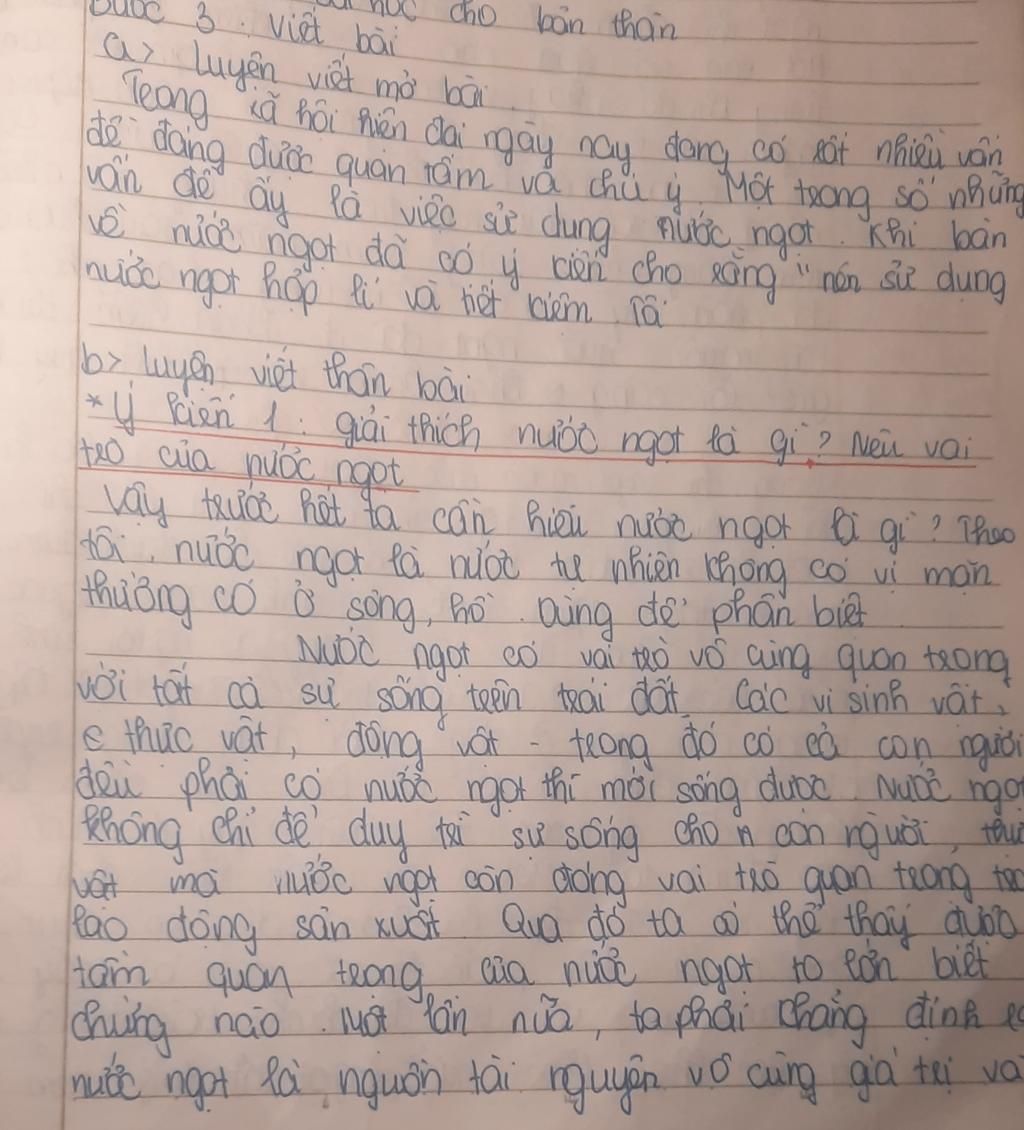 Bước 3. Viết bài học cho bản thân
a> Luyện viết mở bài.
Trong xã hội hiện đại ngày nay đang có rất nhiều vấn
đề đáng được quan tâm và chú ý. Một trong số những
vấn đề ấy là việc sử dụng nước ngọt. Khi bàn
về nước ngọt đã có ý kiến cho rằng "nên sử dụng
nước ngọt hợp lí và tiết kiệm
b> Luyện viết thân bài
* Ý kiến 1: giải thích nước ngọt là gì? Nêu vai
trò của nước ngọt
Vậy trước hết ta cần hiểu nước ngọt là gì? Theo
tôi, nước ngọt là nước tự nhiên không có vị mặn
thường có ở sông, hồ. Dùng để phân biệt
Nước ngọt có vai trò vô cùng quan trọng
với tất cả sự sống trên trái đất. Các vi sinh vật,
thực vật, động vật - trong đó có cả con người
đều phải có nước ngọt thì mới sống được. Nước ngọt
không chỉ để duy trì sự sống cho con người,
vật mà nước ngọt còn đóng vai trò quan trọng
lao động sản xuất. Qua đó ta có thể thấy được
tầm quan trọng của nước ngọt to lớn biết
chừng nào. Một lần nữa, ta phải khẳng định
nước ngọt là nguồn tài nguyên vô cùng giá trị và